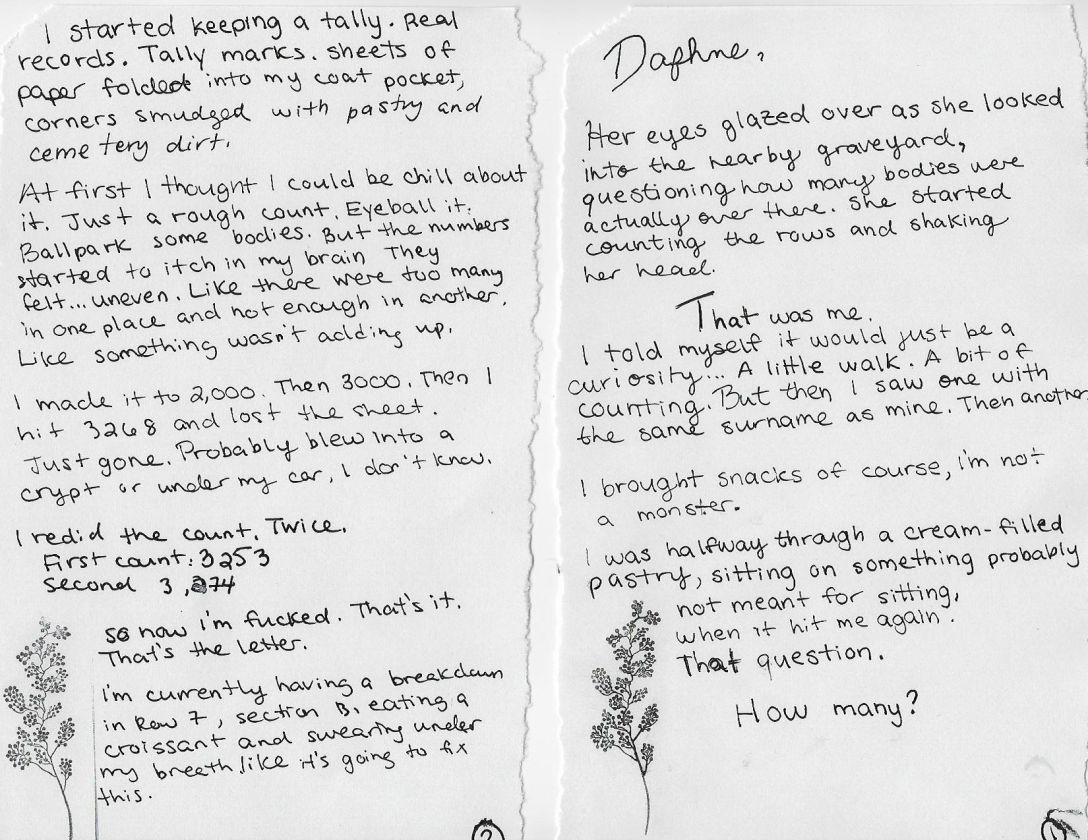 Daphne,
Her eyes glazed over as she looked
into the nearby graveyard,
questioning how many bodies were
actually over there. She started
counting the rows and shaking
her head.
That was me.
I told myself it would just be a
curiosity... A little walk. A bit of
counting. But then I saw one with
the same surname as mine. Then another.
I brought snacks of course, i'm not
a monster.
I was halfway through a cream-filled
pastry, sitting on something probably
not meant for sitting,
when it hit me again.
That question.
How many?
1
I started keeping a tally. Real
records. Tally marks. sheets of
paper folded into my coat pocket,
corners smudged with pastry and
cemetery dirt.
At first I thought I could be chill about
it. Just a rough count. Eyeball it.
Ballpark some bodies. But the numbers
started to itch in my brain They
felt... uneven. Like there were too many
in one place and not enough in another.
Like something wasn't adding up.
I made it to 2,000. Then 3000. Then I
hit 3268 and lost the sheet.
Just gone. Probably blew into a
crypt or under my car, I don't know.
I redid the count. Twice.
First count: 3253
Second 3,274
so now i'm fucked. That's it.
That's the letter.
i'm currently having a breakdown
in Row 7, section B, eating a
croissant and swearing under
my breath like it's going to fix
this.
2